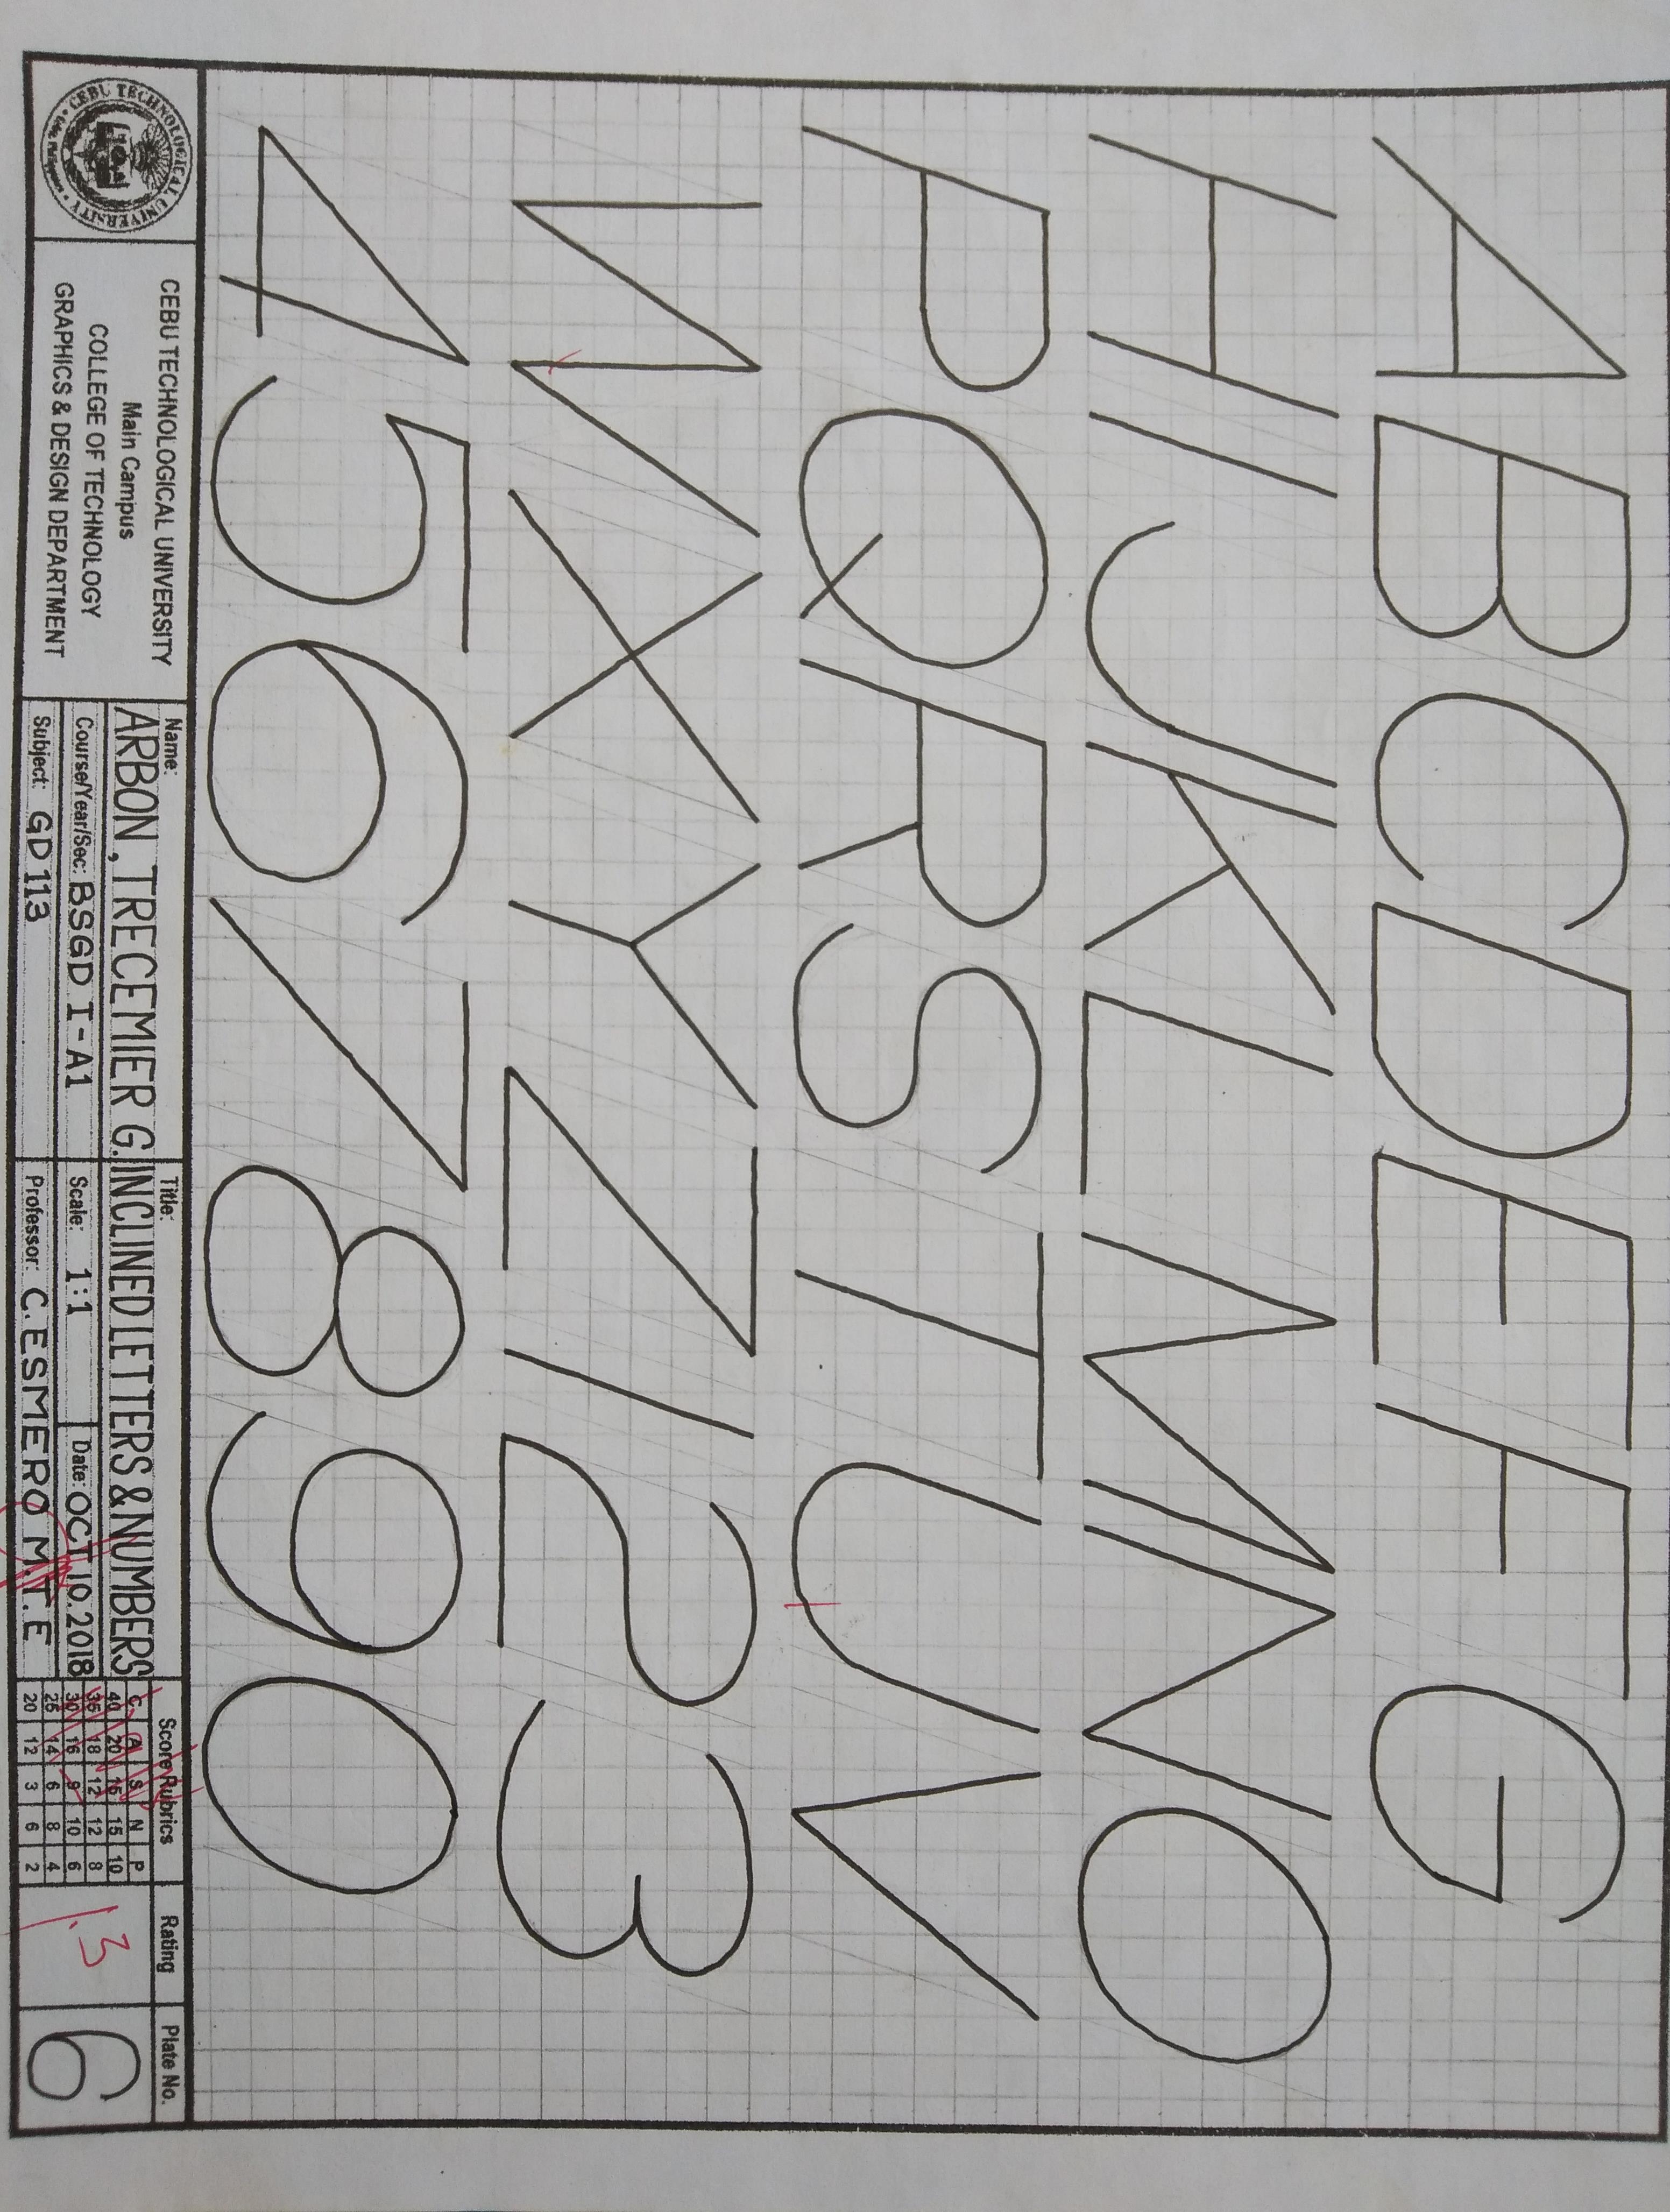 A B C D E F G
H I J K L M N O
P Q R S T U V
W X Y Z 1 2 3
4 5 6 7 8 9 0
CEBU TECHNOLOGICAL UNIVERSITY
CEBU TECHNOLOGICAL UNIVERSITY
Main Campus
COLLEGE OF TECHNOLOGY
GRAPHICS & DESIGN DEPARTMENT
Name:
ARBON, TRECEMIER G.
Course/Year/Sec: BSGD I-A1
Subject: GD 113
Title:
INCLINED LETTERS & NUMBERS
Scale: 1:1
Date: OCT 10. 2018
Professor: C. ESMERO M.T.E
Score Rubrics
C A S N P
40 20 15 15 10
35 18 12 12 8
30 16 9 10 6
25 14 6 8 4
20 12 3 6 2
Rating
1.3
Plate No.
6